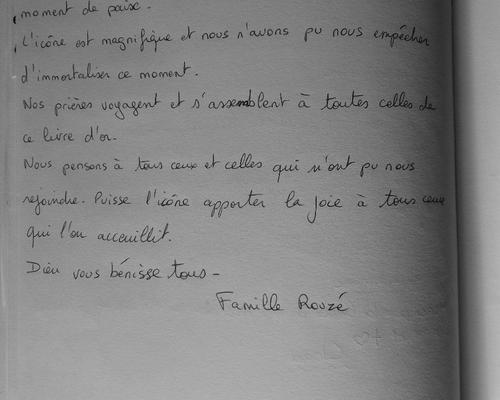 moment de paix.
L'icône est magnifique et nous n'avons pu nous empêcher
d'immortaliser ce moment.
Nos prières voyagent et s'assemblent à toutes celles de
ce livre d'or.
Nous pensons à tous ceux et celles qui n'ont pu nous
rejoindre. Puisse l'icône apporter la joie à tous ceux
qui l'ou accueillit.
Dieu vous bénisse tous -
Famille Rouzé